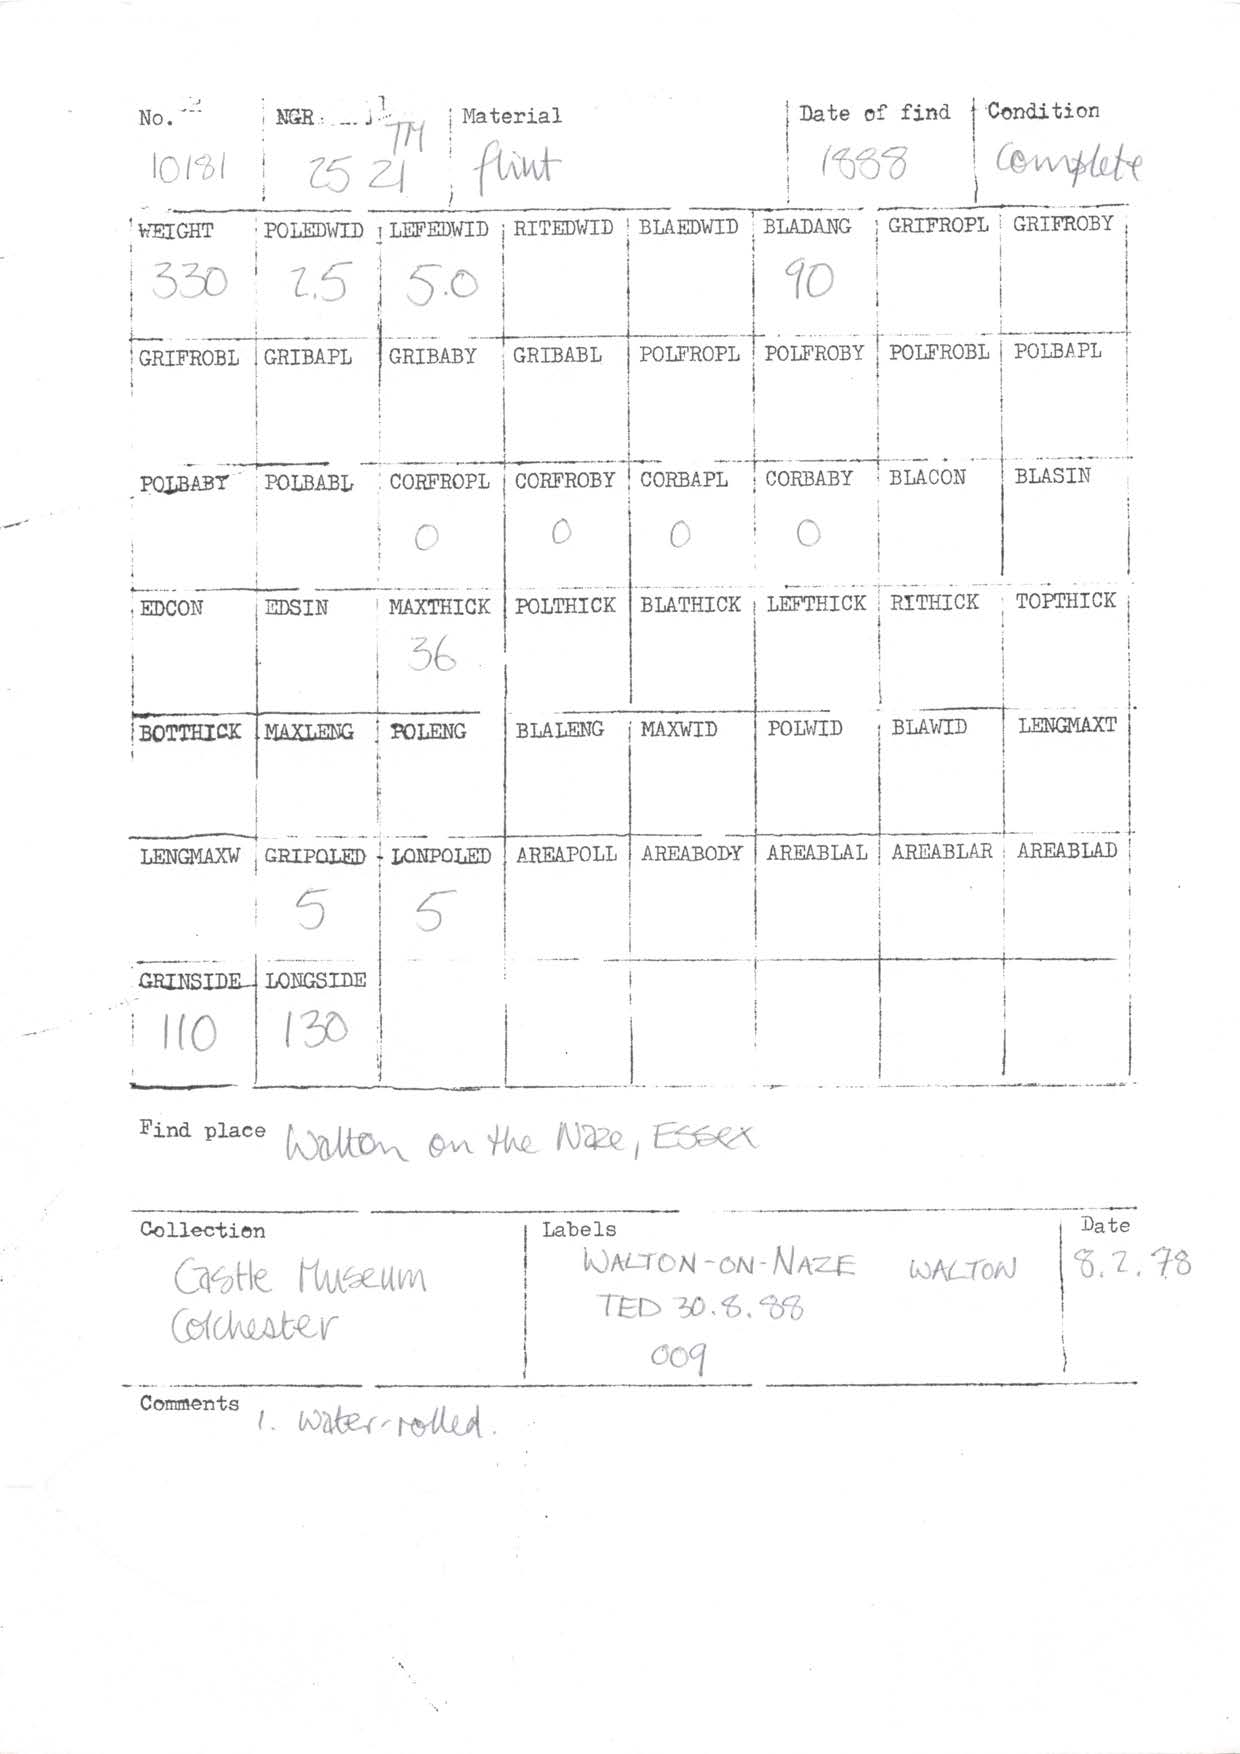 No. NGR Material Date of find Condition
10181 TM 25 21 flint 1888 Complete
WEIGHT POLEDWID LEFEDWID RITEDWID BLAEDWID BLADANG GRIFROPL GRIFROBY
330 2.5 5.0 90
GRIFROBL GRIBAPL GRIBABY GRIBABL POLFROPL POLFROBY POLFROBL POLBAPL
POLBABY POLBABL CORFROPL CORFROBY CORBAPL CORBABY BLACON BLASIN
0 0 0 0
EDCON EDSIN MAXTHICK POLTHICK BLATHICK LEFTHICK RITHICK TOPTHICK
36
BOTTHICK MAXLENG POLENG BLALENG MAXWID POLWID BLAWID LENGMAXT
LENGMAXW GRIPOLED LONPOLED AREAPOLL AREABODY AREABLAL AREABLAR AREABLAD
5 5
GRINSIDE LONGSIDE
110 130
Find place Walton on the Naze, Essex
Collection Labels Date
Castle Museum WALTON-ON-NAZE WALTON 8.2.78
Colchester TED 30.8.88
009
Comments 1. Water-rolled.